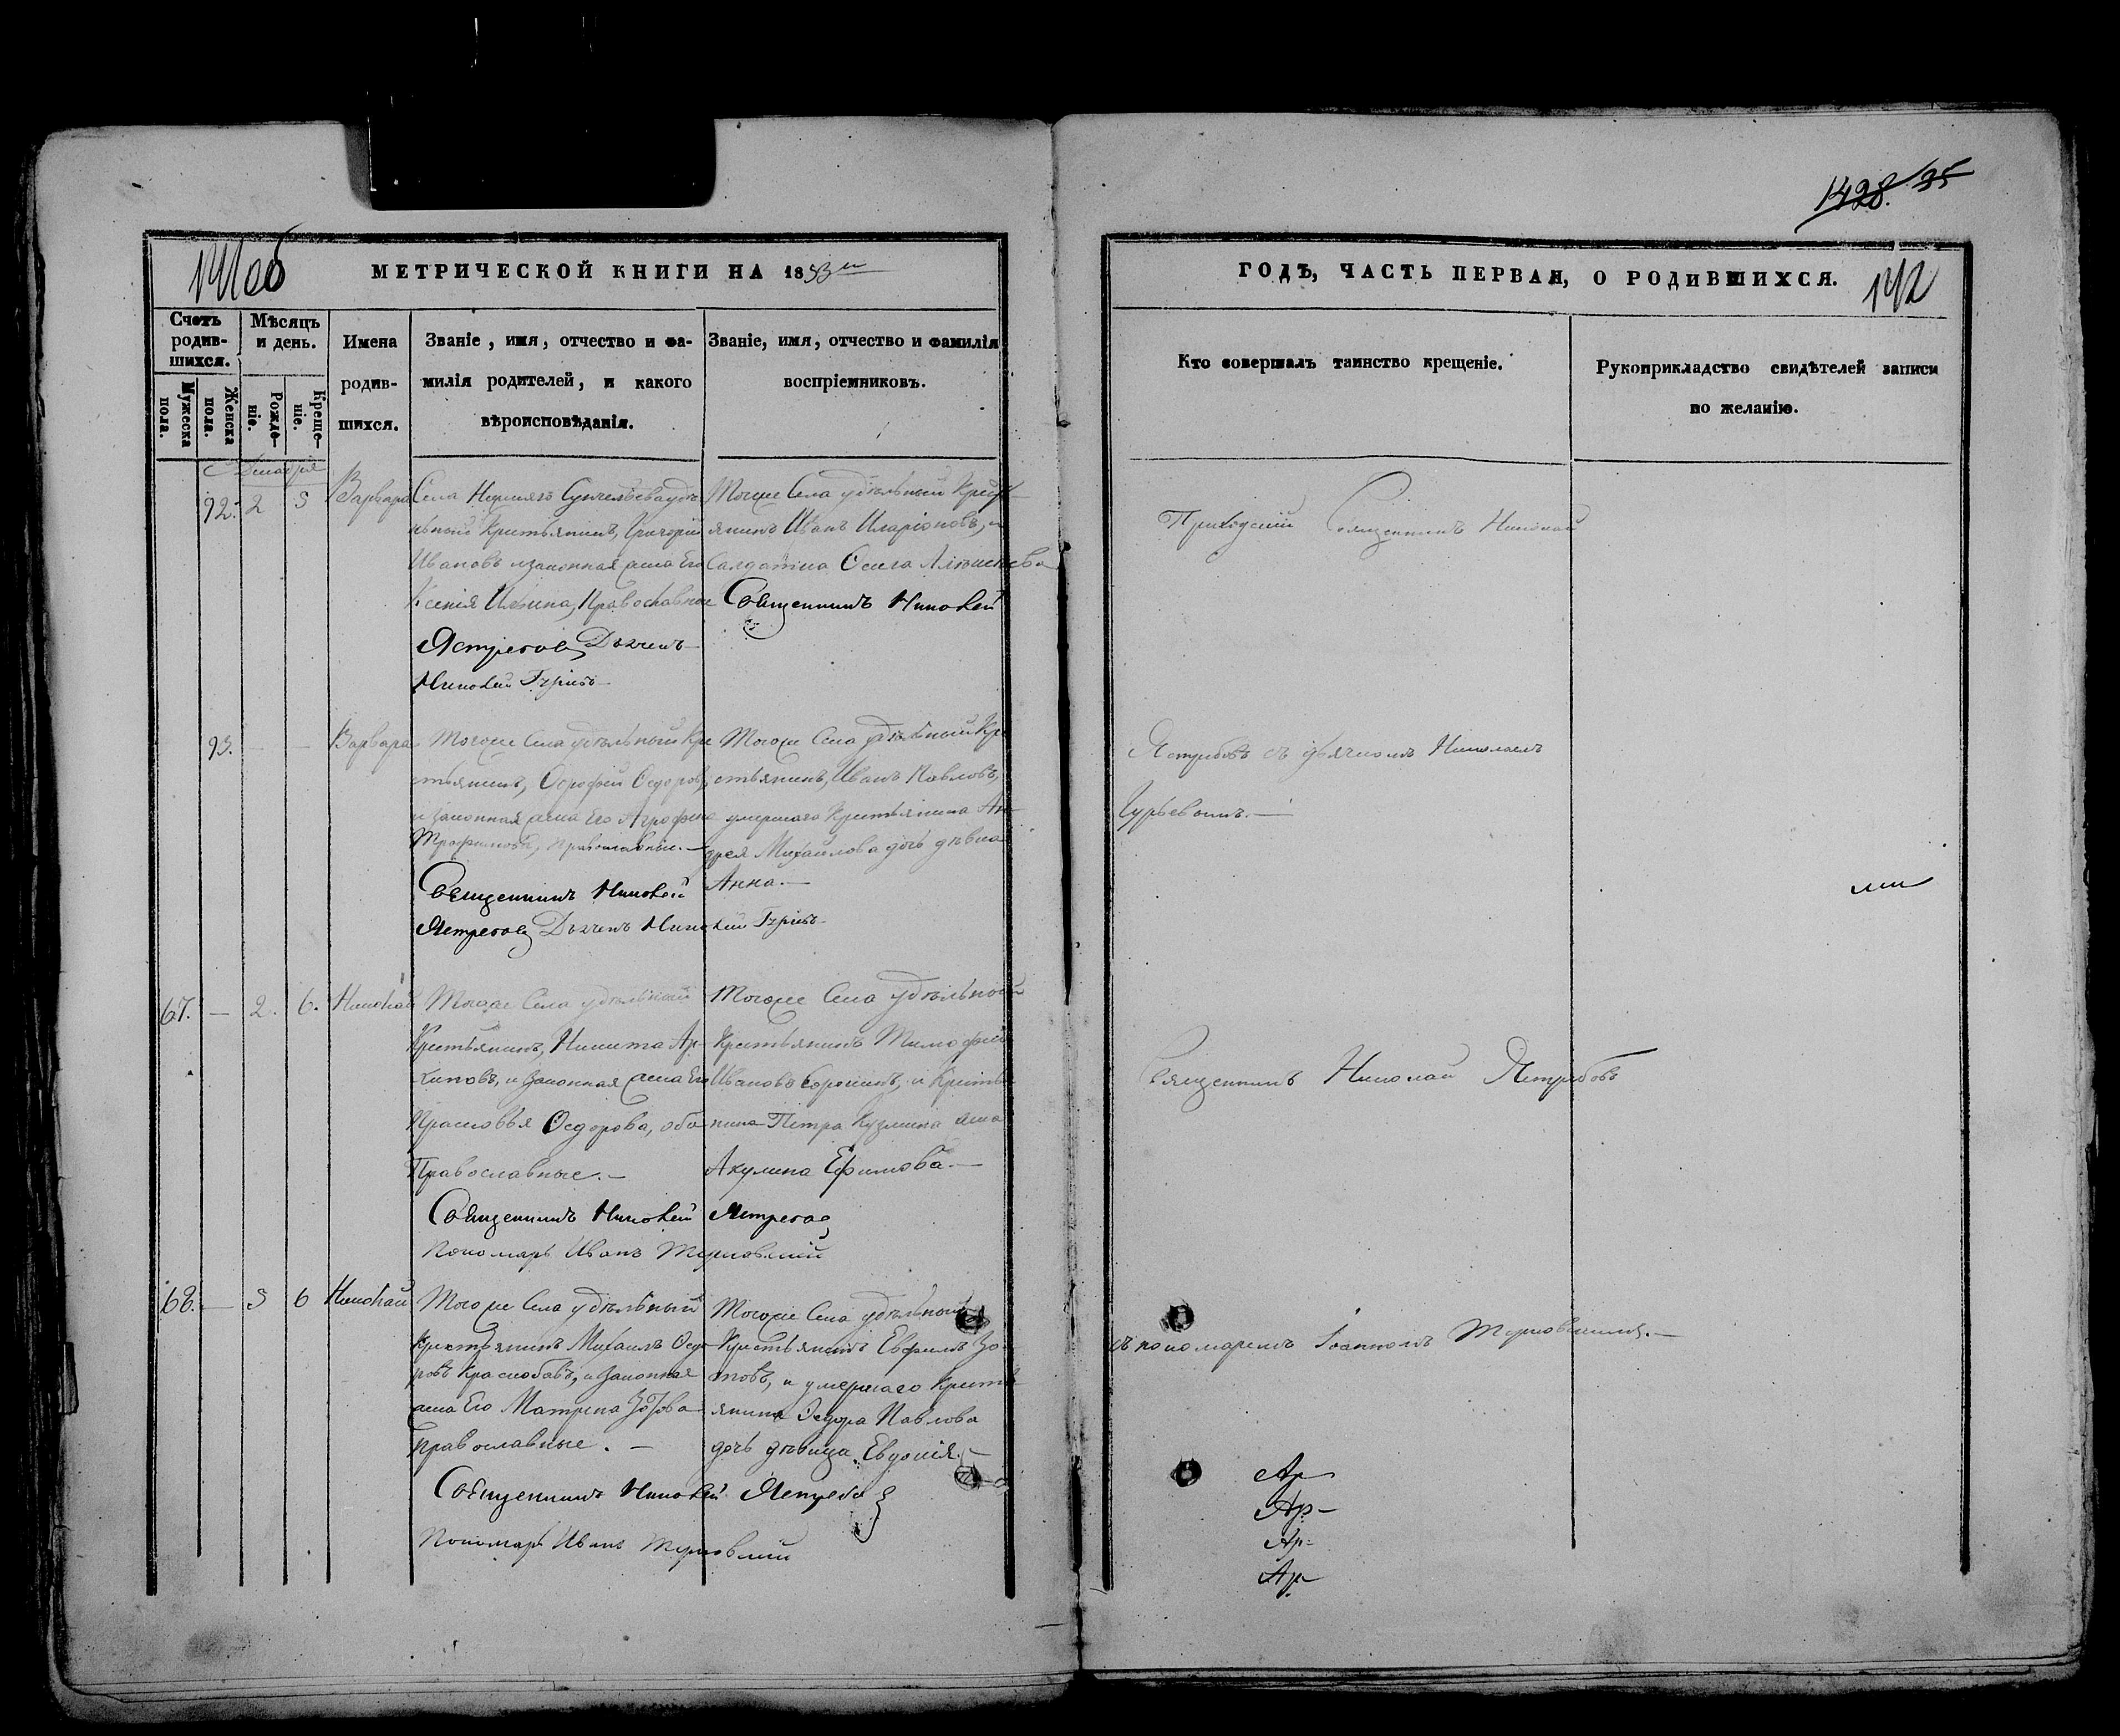 1428. 95
141об
МЕТРИЧЕСКОЙ КНИГИ НА 1853 й
Счетъ родив-шихся.
Мужеска пола.
Женска пола.
Мѣсяцъ и день.
Рожде-ніе.
Креще-ніе.
Имена
родив-
шихся.
Званіе, имя, отчество и фа-
милія родителей, и какого
вѣроисповѣданія.
Званіе, имя, отчество и фамилія
воспріемниковъ.
Декабрія
92. 2 5 Варвара
Села
Крестьянинъ, Григорій
Ивановъ и законная жена Его
Ксенія Ильина, Православные
Ястребовъ Дьячекъ
Николай Гурьевъ
Тогоже Села удѣльный Крест
янинъ Иванъ Иларіоновъ, и
Салдатка
Священникъ Николай
93. — — Варвара
Тогоже Села удѣльный Кре
стьянинъ, Ѳедоровъ,
и законная жена Его Агрофена
Трофимова, православные.—
Священникъ Николай
Ястребовъ Дьячекъ Николай Гурьевъ
Тогоже Села удѣльный Кре
стьянинъ, Иванъ Павловъ,
умершаго Крестьянина Ан
дрея Михайлова дочь дѣвка
Анна.—
67. — 2. 6. Николай
Тогоже Села удѣльный
Крестьянинъ, Никита Ар
хиповъ, и законная жена Его
Прасковья Ѳедорова, оба
Православные.—
Священникъ Николай Ястребовъ
Пономарь Иванъ
Тогоже Села удѣльной
Крестьянинъ Тимофей
Ивановъ и Крестья
нина Петра Кузмина жена
Акулина Ефимова.—
68. — 5 6 Николай
Тогоже Села удѣльный
Крестьянинъ Михаилъ Ѳедо
ровъ и законная
жена Его Матрена Зотова
Православные. —
Священникъ Николай Ястребовъ
Пономарь Иванъ
Тогоже Села удѣльной
Крестьянинъ Евфимъ Зо
товъ, и умершаго Кресть
янина Ѳедора Павлова
дочь дѣвица Евдокія.—
ГОДЪ, ЧАСТЬ ПЕРВАЯ, О РОДИВШИХСЯ.
142
Кто совершалъ таинство крещеніе.
Рукоприкладство свидѣтелей записи
по желанію.
Приходскій Священникъ Николай
Ястребовъ съ дьячкомъ Николаемъ
Гурьевымъ.—
Священникъ Николай Ястребовъ
съ пономаремъ Іоанномъ
Ар
Ар-
Ар-
Ар-